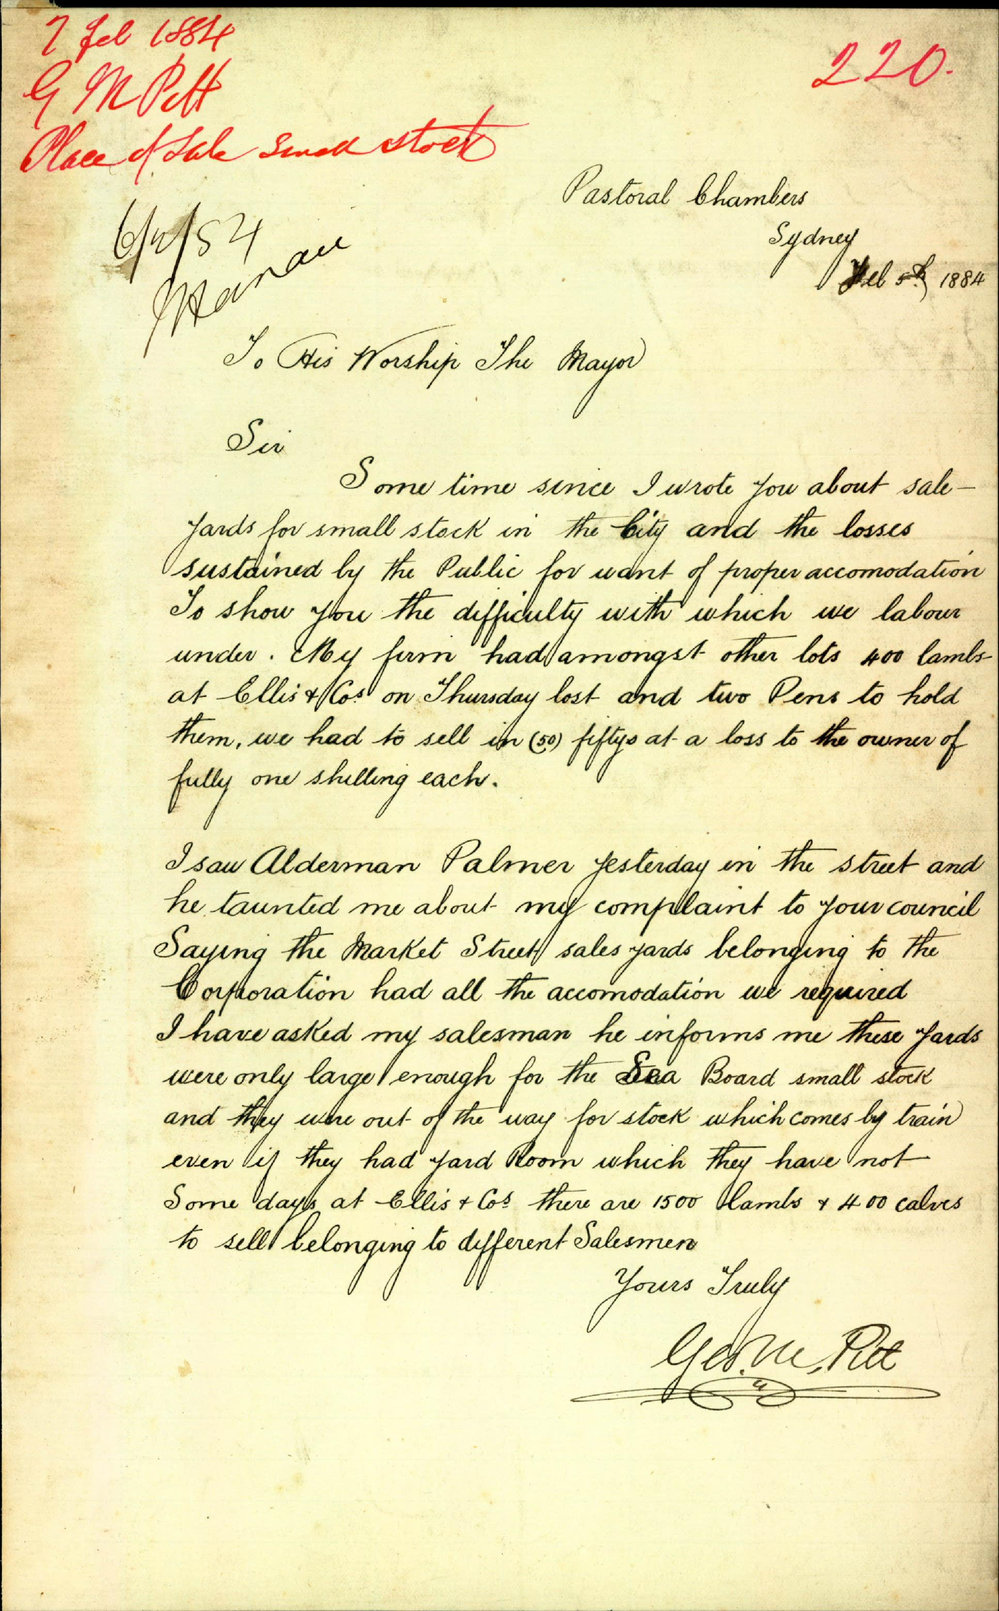 7 Feb 1884
220.
G M Pitt
Place of Sale Small Stock
Pastoral Chambers
Sydney
Feb 5th 1884
6/2/84
To His Worship The Mayor
Sir
Some time since I wrote you about sale-
yards for small stock in the City and the losses
sustained by the Public for want of proper accomodation
To show you the difficulty with which we labour
under. My firm had amongst other lots 400 lambs
at Ellis & Cos on Thursday last and two Pens to hold
them, we had to sell in (50) fiftys at a loss to the owner of
fully one shilling each.
I saw Alderman Palmer yesterday in the street and
he taunted me about my complaint to your council
Saying the Market Street sales yards belonging to the
Corporation had all the accomodation we required
I have asked my salesman he informs me these yards
were only large enough for the Sea Board small stock
and they were out of the way for stock which comes by train
even if they had yard Room which they have not
Some days at Ellis & Cos there are 1500 lambs & 400 calves
to sell belonging to different Salesmen
Yours Truly
Geo. M. Pitt